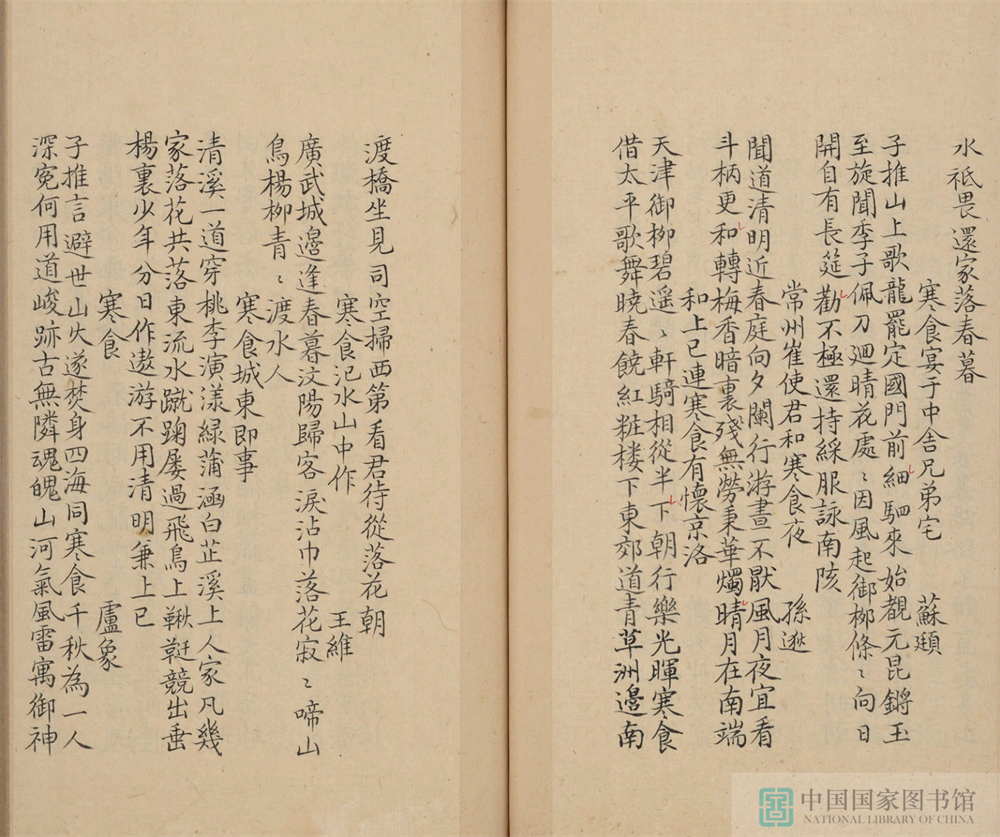 水祗畏還家落春暮
寒食宴于中舍兄弟宅 蘇頲
子推山上歌龍罷定國門前細駟來始覩元昆鏘玉
至旋聞季子佩刀廻晴花處〻因風起御柳條〻向日
開自有長筵勸不極還持綵服詠南陔
常州崔使君和寒食夜 孫逖
聞道清明近春庭向夕闌行游晝不厭風月夜宜看
斗柄更和轉梅香暗裏殘無勞秉華燭晴月在南端
和上巳連寒食有懷京洛
天津御柳碧遥〻軒騎相從半下朝行樂光暉寒食
借太平歌舞曉春饒紅粧楼下東郊道青草洲邉南
渡橋坐見司空掃西第看君待從落花朝
寒食汜水山中作 王維
廣武城邉逢春暮汶陽歸客淚沾巾落花寂〻啼山
鳥楊柳青〻渡水人
寒食城東即事
清溪一道穿桃李演漾緑蒲涵白芷溪上人家凡幾
家落花共落東流水蹴踘屡過飛鳥上鞦韆競出垂
楊裏少年分日作遨游不用清明兼上巳
寒食 盧象
子推言避世山火遂焚身四海同寒食千秋為一人
深寃何用道峻跡古無隣魂魄山河氣風雷寓御神
中国国家图书馆
NATIONAL LIBRARY OF CHINA